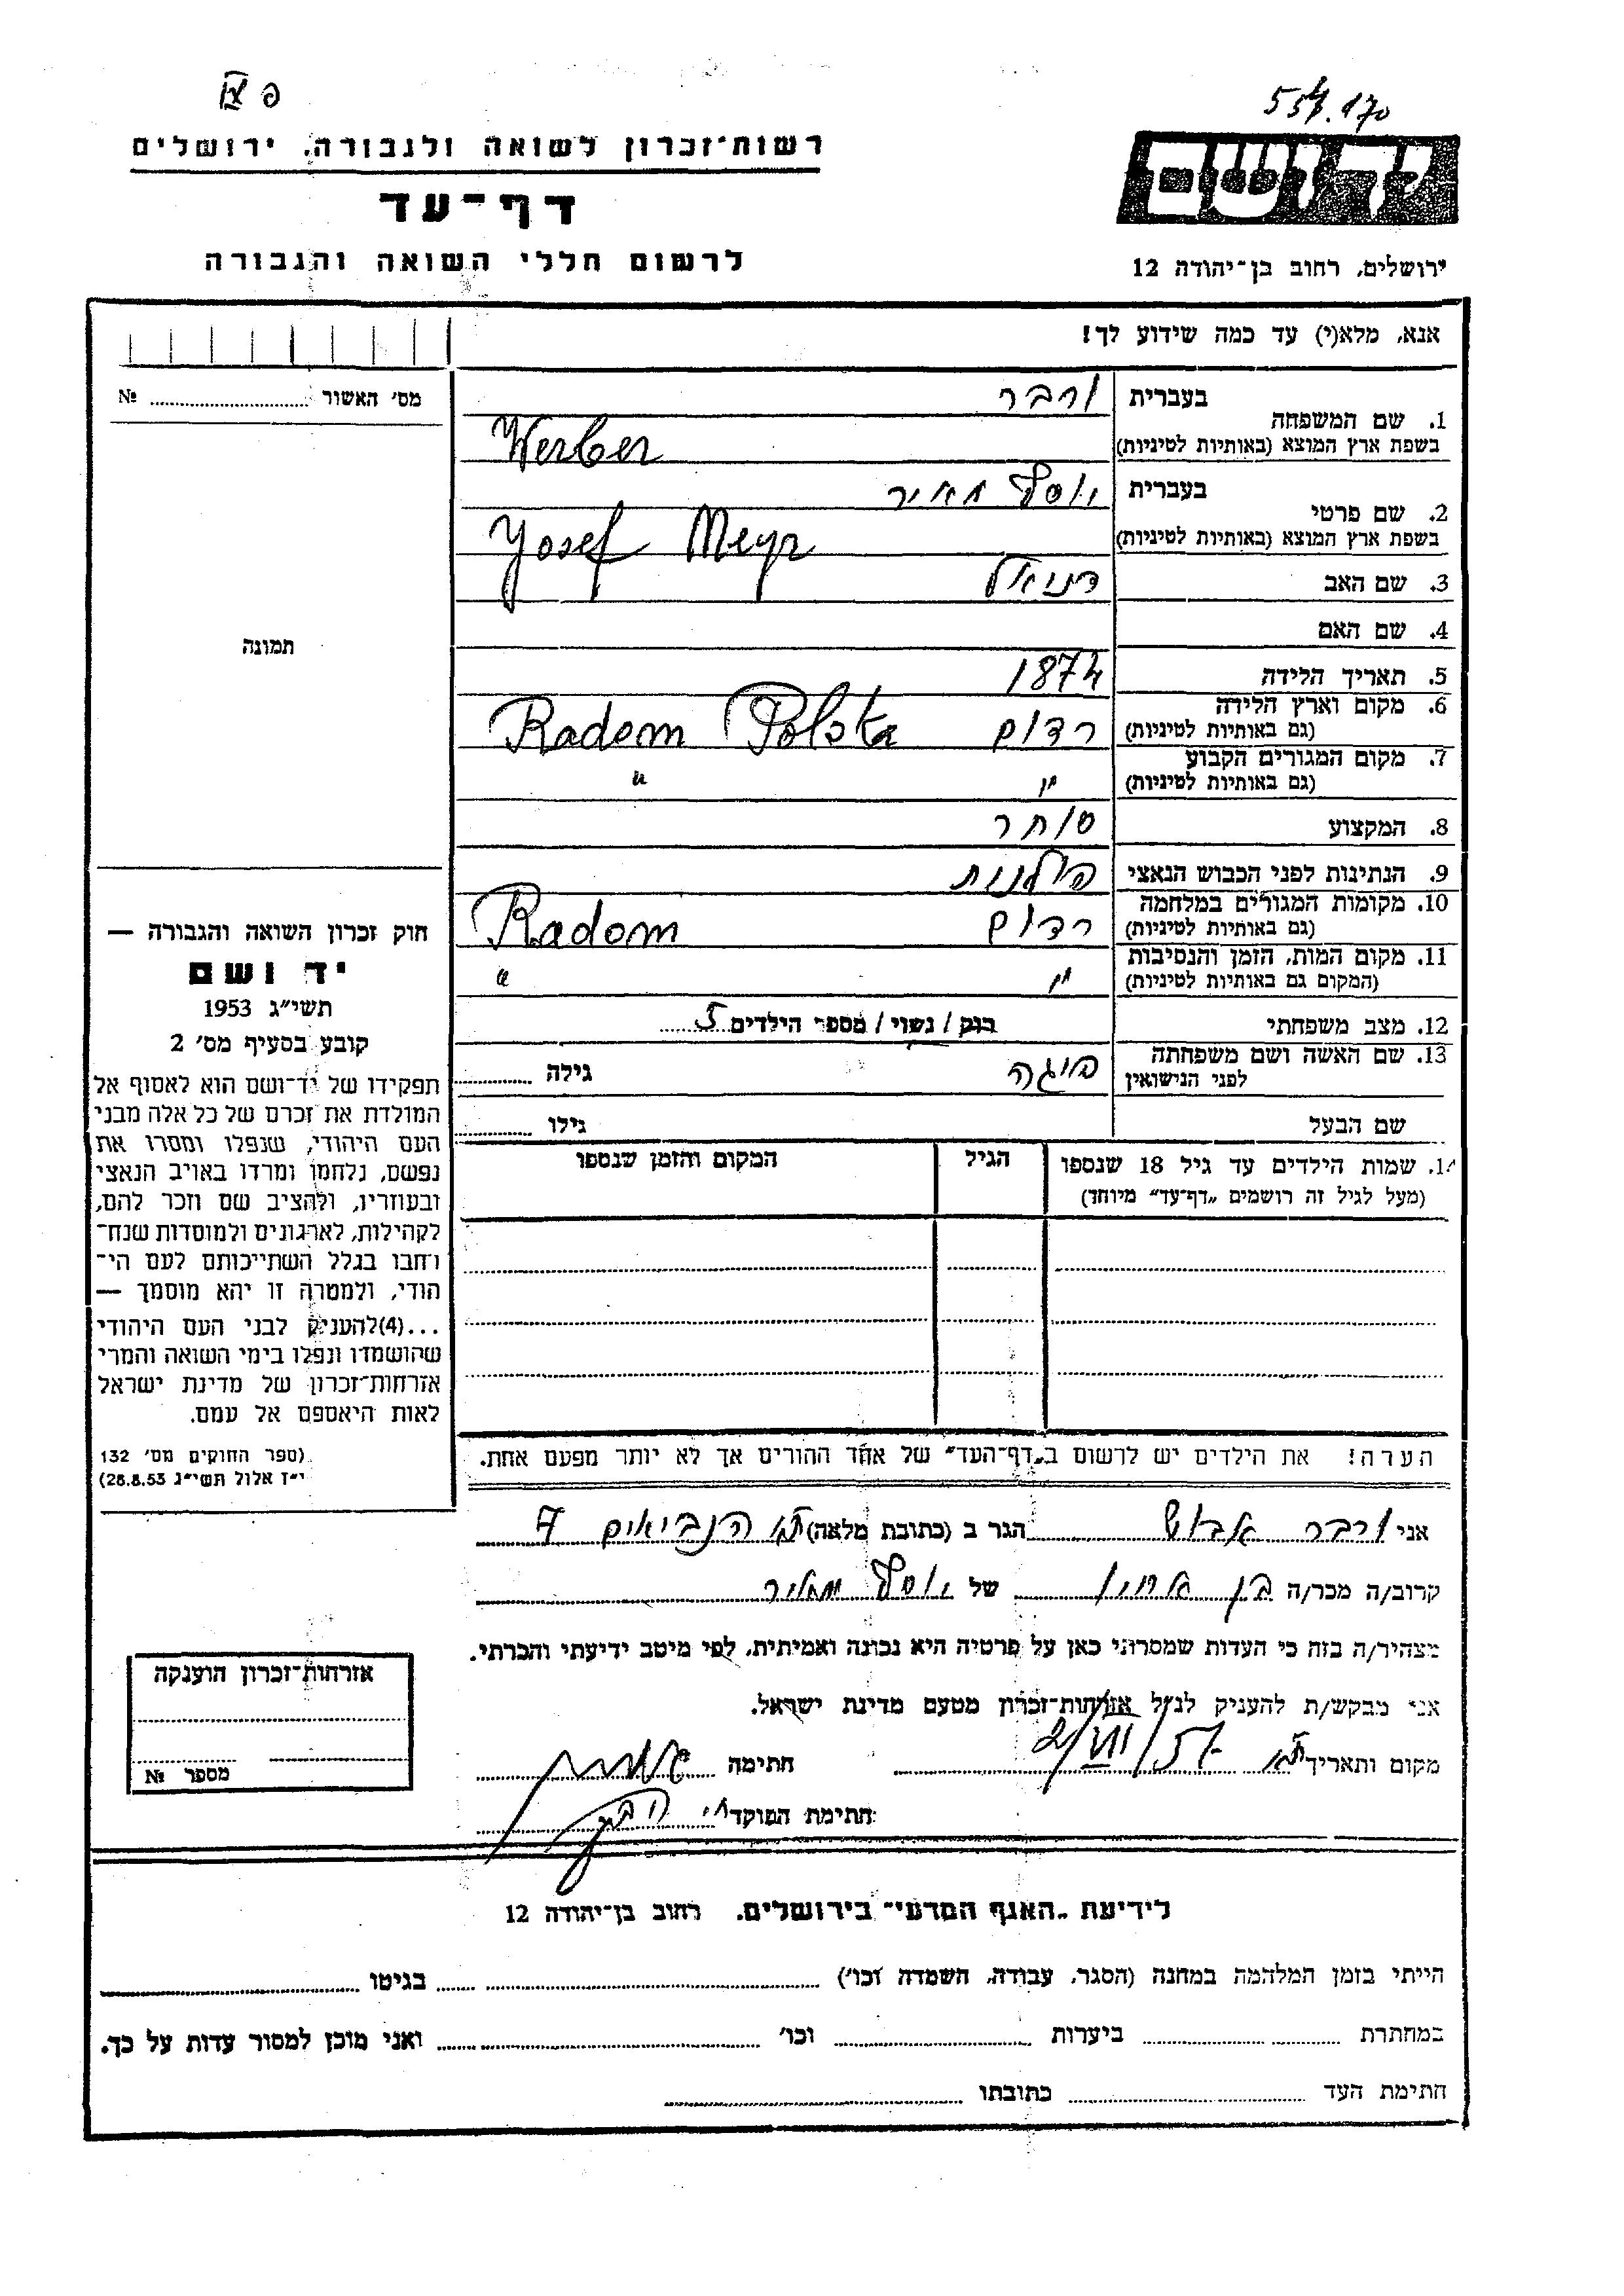 פ
רשות־זכרון לשואה ולגבורה, ירושלים
דף־עד
לרשום חללי השואה והגבורה
ידושם
ירושלים, רחוב בן־יהודה 12
אנא, מלא(י) עד כמה שידוע לך!
מס׳ האשור № 
1. שם המשפחה בעברית ורבר
בשפת ארץ המוצא (באותיות לטיניות) Werber
2. שם פרטי בעברית יוסף מאיר
בשפת ארץ המוצא (באותיות לטיניות) Yosef Meyr
3. שם האב דניאל
4. שם האם
5. תאריך הלידה 1874
6. מקום וארץ הלידה רדום Radom Polska
(גם באותיות לטיניות)
7. מקום המגורים הקבוע " "
(גם באותיות לטיניות)
8. המקצוע סוחר
9. הנתינות לפני הכבוש הנאצי פולנית
10. מקומות המגורים במלחמה רדום Radom
(גם באותיות לטיניות)
11. מקום המות, הזמן והנסיבות " "
(המקום גם באותיות לטיניות)
12. מצב משפחתי רווק / נשוי / מספר הילדים 5
13. שם האשה ושם משפחתה פייגה גילה
לפני הנישואין
שם הבעל גילו
14. שמות הילדים עד גיל 18 שנספו הגיל המקום והזמן שנספו
(מעל לגיל זה רושמים „דף־עד״ מיוחד)
הערה! את הילדים יש לרשום ב„דף־העד״ של אחד ההורים אך לא יותר מפעם אחת.
תמונה
חוק זכרון השואה והגבורה —
יד ושם
תשי״ג 1953
קובע בסעיף מס׳ 2
תפקידו של יד־ושם הוא לאסוף אל
המולדת את זכרם של כל אלה מבני
העם היהודי, שנפלו ומסרו את
נפשם, נלחמו ומרדו באויב הנאצי
ובעוזריו, ולהציב שם וזכר להם,
לקהילות, לארגונים ולמוסדות שנח־
רחבו בגלל השתייכותם לעם הי־
הודי, ולמטרה זו יהא מוסמך —
...(4)להעניק לבני העם היהודי
שהושמדו ונפלו בימי השואה והמרי
אזרחות־זכרון של מדינת ישראל
לאות היאספם אל עמם.
(ספר החוקים מס׳ 132
י״ז אלול תשי״ג 28.8.53)
אני ורבר הגר ב (כתובת מלאה) ת״א הנביאים 7
קרוב/ה מכר/ה בן אחיו של יוסף מאיר
מצהיר/ה בזה כי העדות שמסרתי כאן על פרטיה היא נכונה ואמיתית, לפי מיטב ידיעתי והכרתי.
אני מבקש/ת להעניק לנ״ל אזרחות־זכרון מטעם מדינת ישראל.
מקום ותאריך ת״א 2/VII/57 חתימה
חתימת הפוקד
אזרחות־זכרון הוענקה
מספר №
לידיעת „האגף המדעי״ בירושלים, רחוב בן־יהודה 12
הייתי בזמן המלחמה במחנה (הסגר, עבודה, השמדה וכו׳) בגיטו
במחתרת ביערות וכו׳ ואני מוכן למסור עדות על כך.
חתימת העד כתובתו